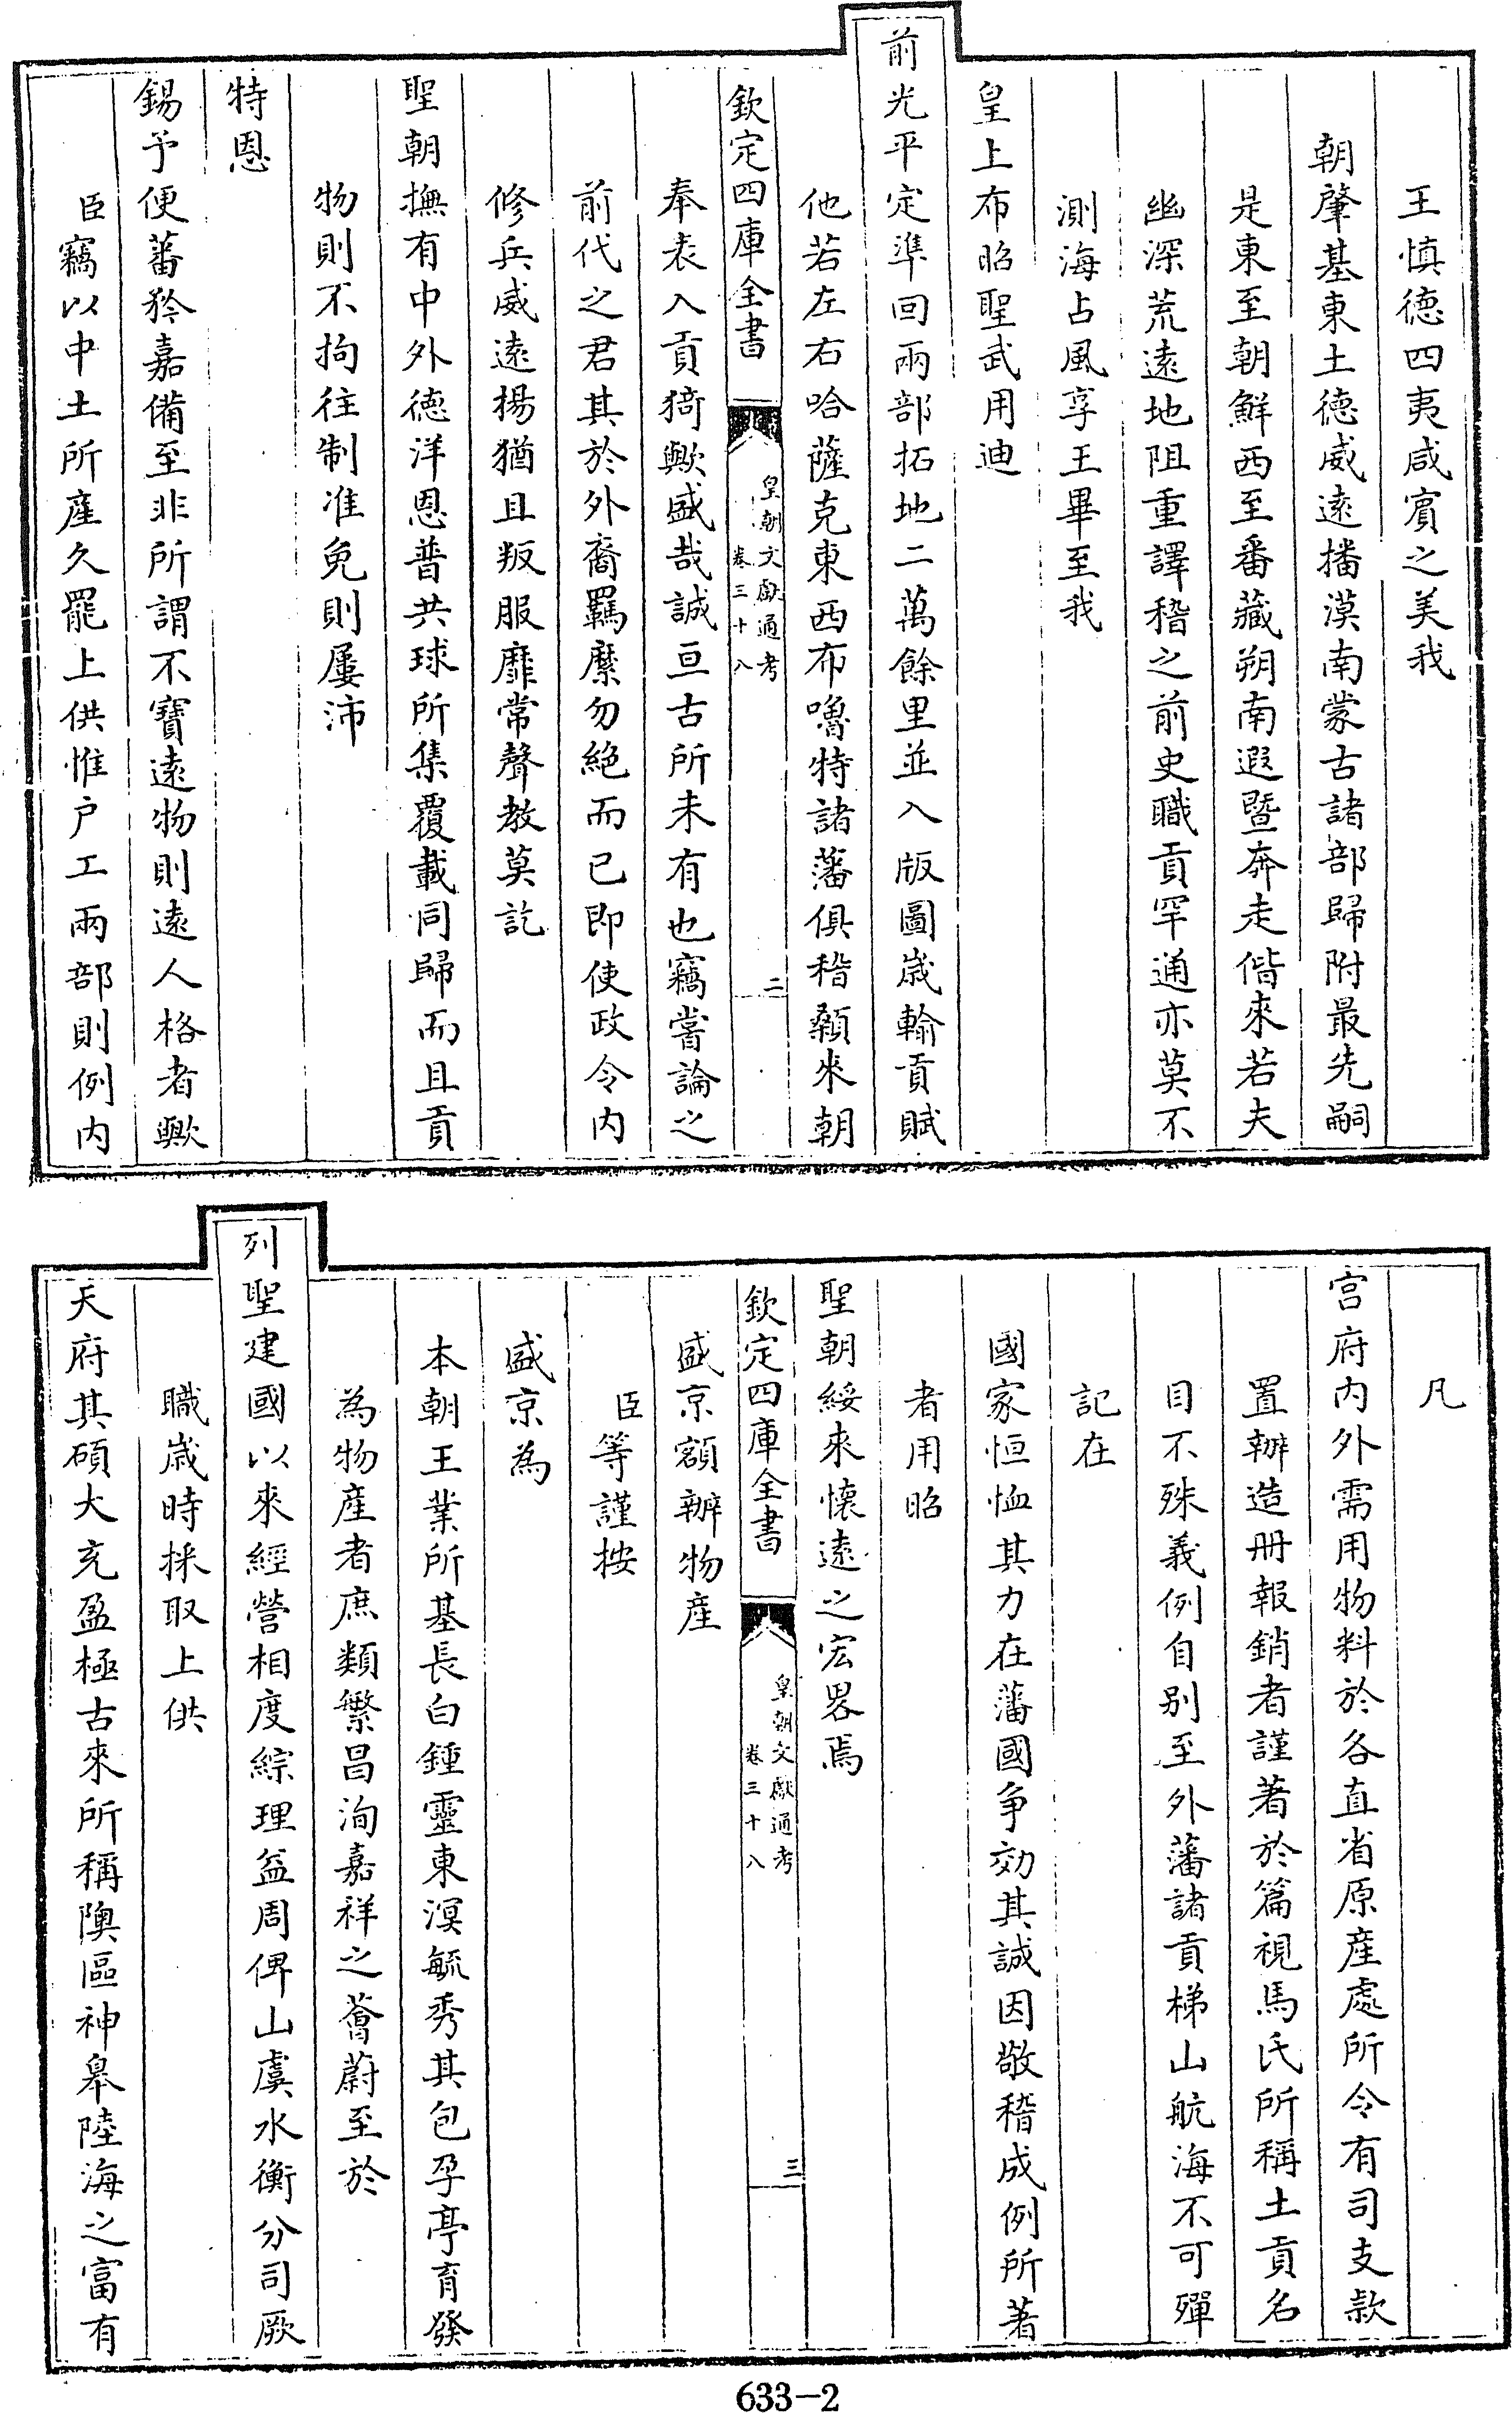 王慎德四夷咸賓之美我
朝肇基東土德威遠播漠南蒙古諸部歸附最先嗣
是東至朝鮮西至番藏朔南遐暨奔走偕來若夫
幽深荒遠地阻重譯稽之前史職貢罕通亦莫不
測海占風享王畢至我
皇上布昭聖武用迪
前光平定準回兩部拓地二萬餘里並入版圖歲輸貢賦
他若左右哈薩克東西布嚕特諸藩俱稽顙來朝
欽定四庫全書
皇朝文獻通考
卷三十八
二
奉表入貢猗歟盛哉誠亘古所未有也竊嘗論之
前代之君其於外裔羈縻勿絶而已即使政令内
修兵威遠揚猶且叛服靡常聲教莫訖
聖朝撫有中外德洋恩普共球所集覆載同歸而且貢
物則不拘往制准免則屢沛
特恩
錫予便蕃矜嘉備至非所謂不寶遠物則遠人格者歟
臣竊以中土所産久罷上供惟户工兩部則例内
凡
宫府内外需用物料於各直省原産處所令有司支款
置辦造冊報銷者謹著於篇視馬氏所稱土貢名
目不殊義例自别至外藩諸貢梯山航海不可殫
記在
國家恒恤其力在藩國争効其誠因敬稽成例所著
者用昭
聖朝綏來懷遠之宏畧焉
欽定四庫全書
皇朝文獻通考
卷三十八
三
盛京額辦物産
臣等謹按
盛京為
本朝王業所基長白鍾靈東溟毓秀其包孕亭育發
為物産者庶類繁昌洵嘉祥之薈蔚至於
列聖建國以來經營相度綜理益周俾山虞水衡分司厥
職歳時採取上供
天府其碩大充盈極古來所稱隩區神臯陸海之富有
633-2